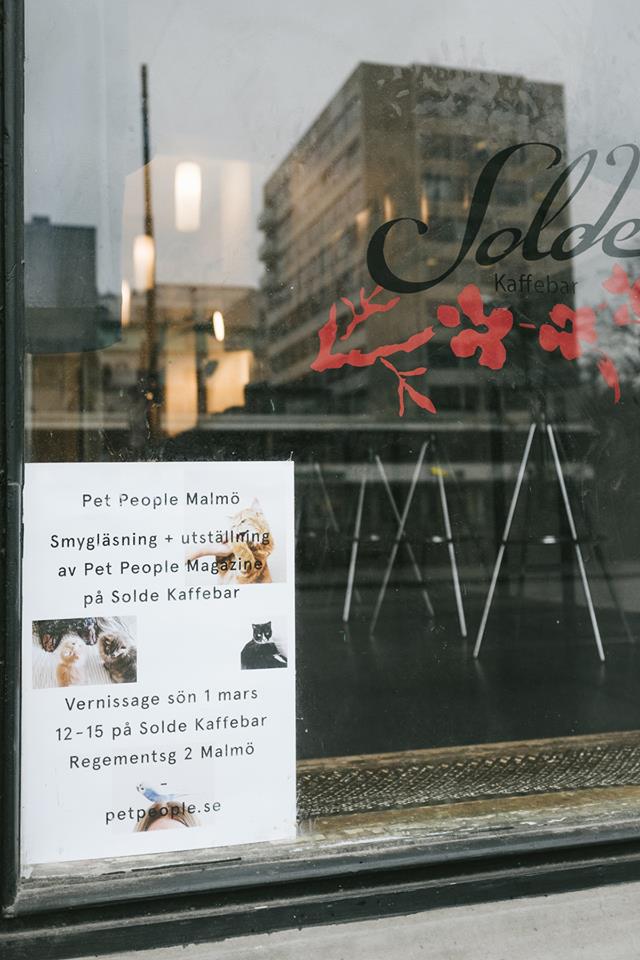 Solde
Kaffebar
Pet People Malmö
Smygläsning + utställning
av Pet People Magazine
på Solde Kaffebar
Vernissage sön 1 mars
12-15 på Solde Kaffebar
Regementsg 2 Malmö
-
petpeople.se